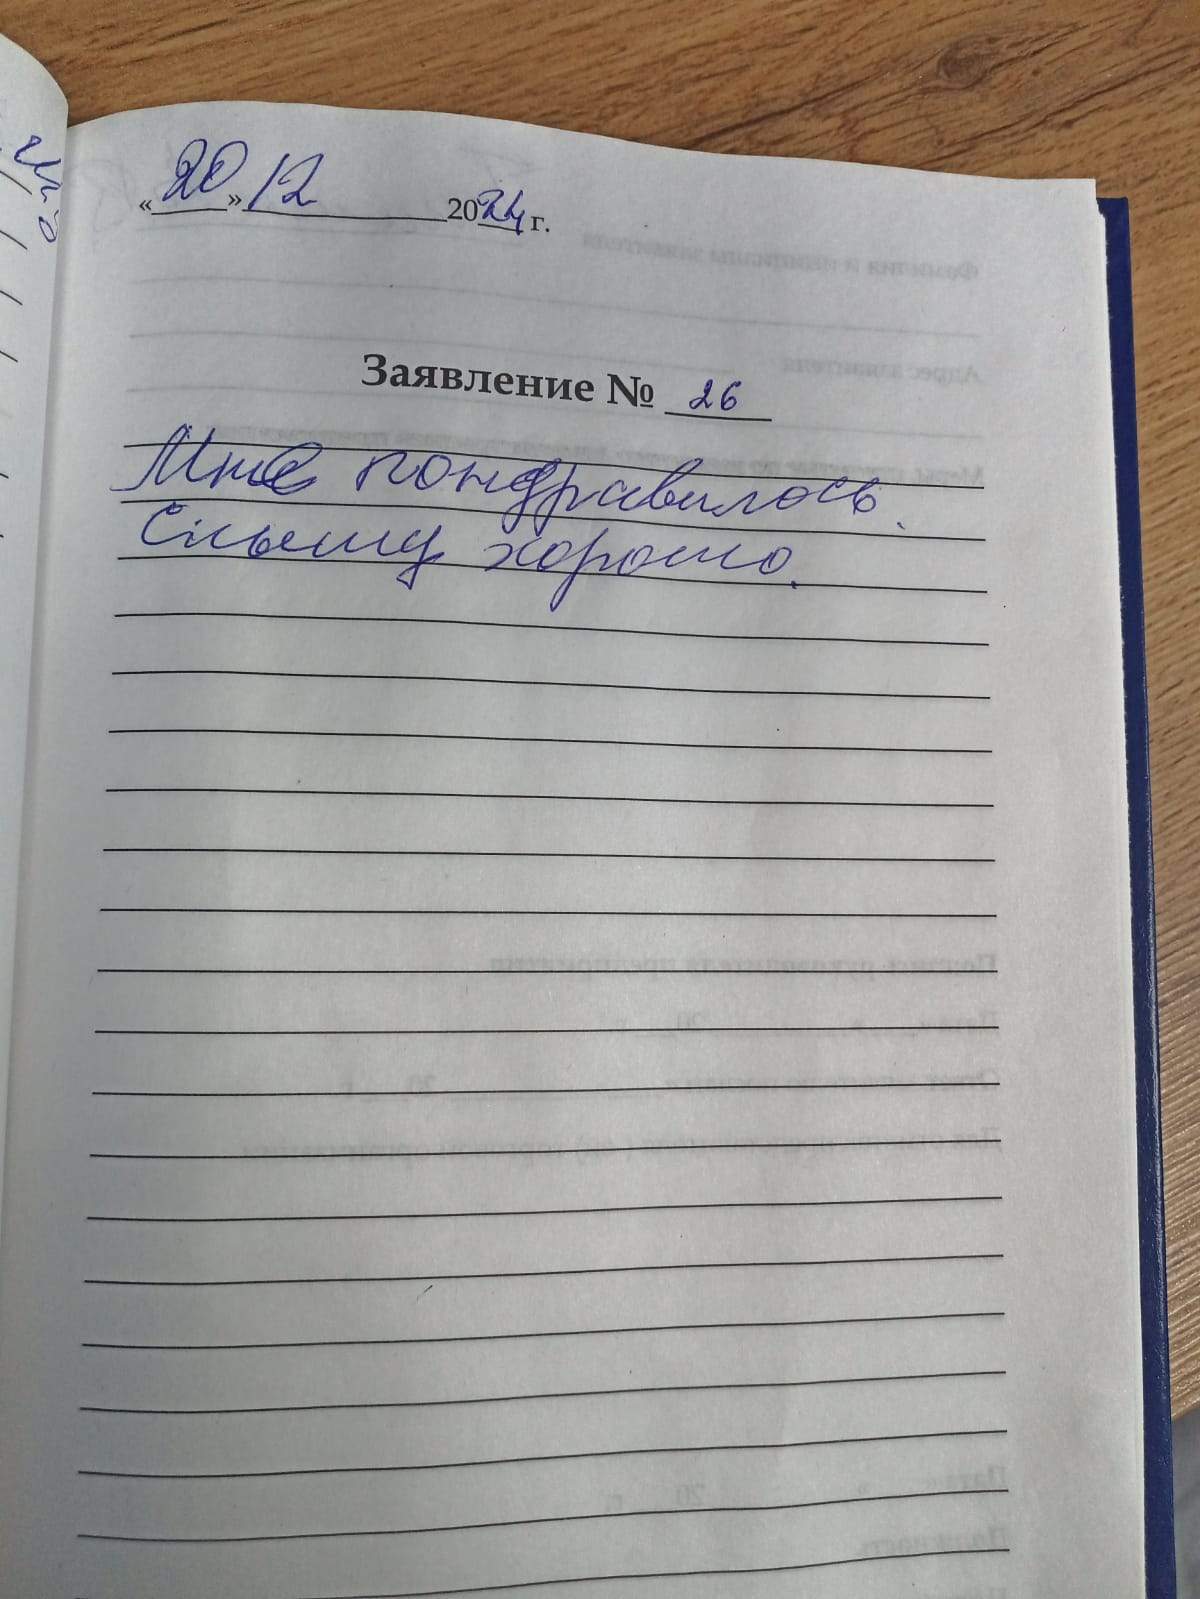 «20» 12 2024 г.
Заявление № 26
Мне пондравилось.
Слышу хорошо.